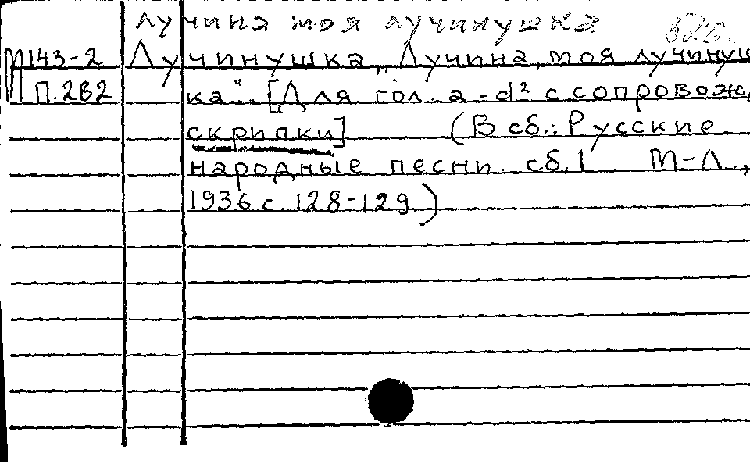 лучина моя лучинушка
М143-2 Лучинушка „Лучина, моя лучинуш
П.282 ка". [Для гол. a-d² с сопровожд.
скрипки] (В сб.: Русские
народные песни сб.1 М-Л.,
1936 с. 128-129)